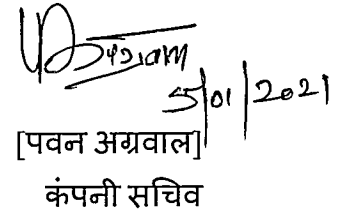 5/01/2021
[पवन अग्रवाल]
कंपनी सचिव